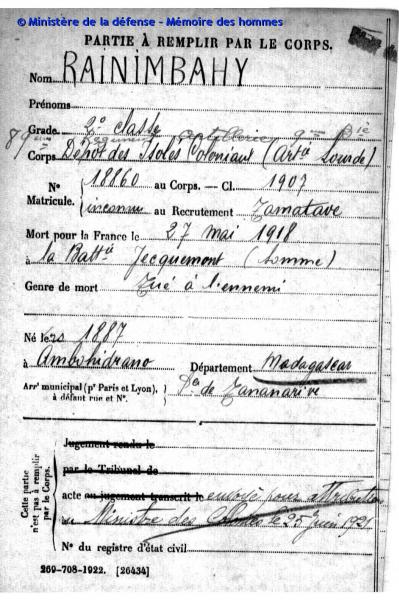 © Ministère de la défense - Mémoire des hommes
PARTIE À REMPLIR PAR LE CORPS.
Nom RAINIMBAHY
Prénoms
Grade 2e classe
89me Régiment Artillerie 9me Bie
Corps Dépôt des Isolés Coloniaux (Artie Lourde)
N° 18860 au Corps. — Cl. 1907
Matricule. inconnu au Recrutement Tamatave
Mort pour la France le 27 mai 1918
à la Battie Jecquemont (Somme)
Genre de mort Tué à l'ennemi
Né le 1887
à Ambohidrano Département Madagascar
Arrt municipal (pr Paris et Lyon), à défaut rue et N°. Dce de Tananarive
Cette partie n'est pas à remplir par le Corps.
Jugement rendu le
par le Tribunal de
acte ou jugement transcrit le envoyé pour attribution
au Ministre des Colonies le 25 juin 1921
N° du registre d'état civil
269-708-1922. [26434]